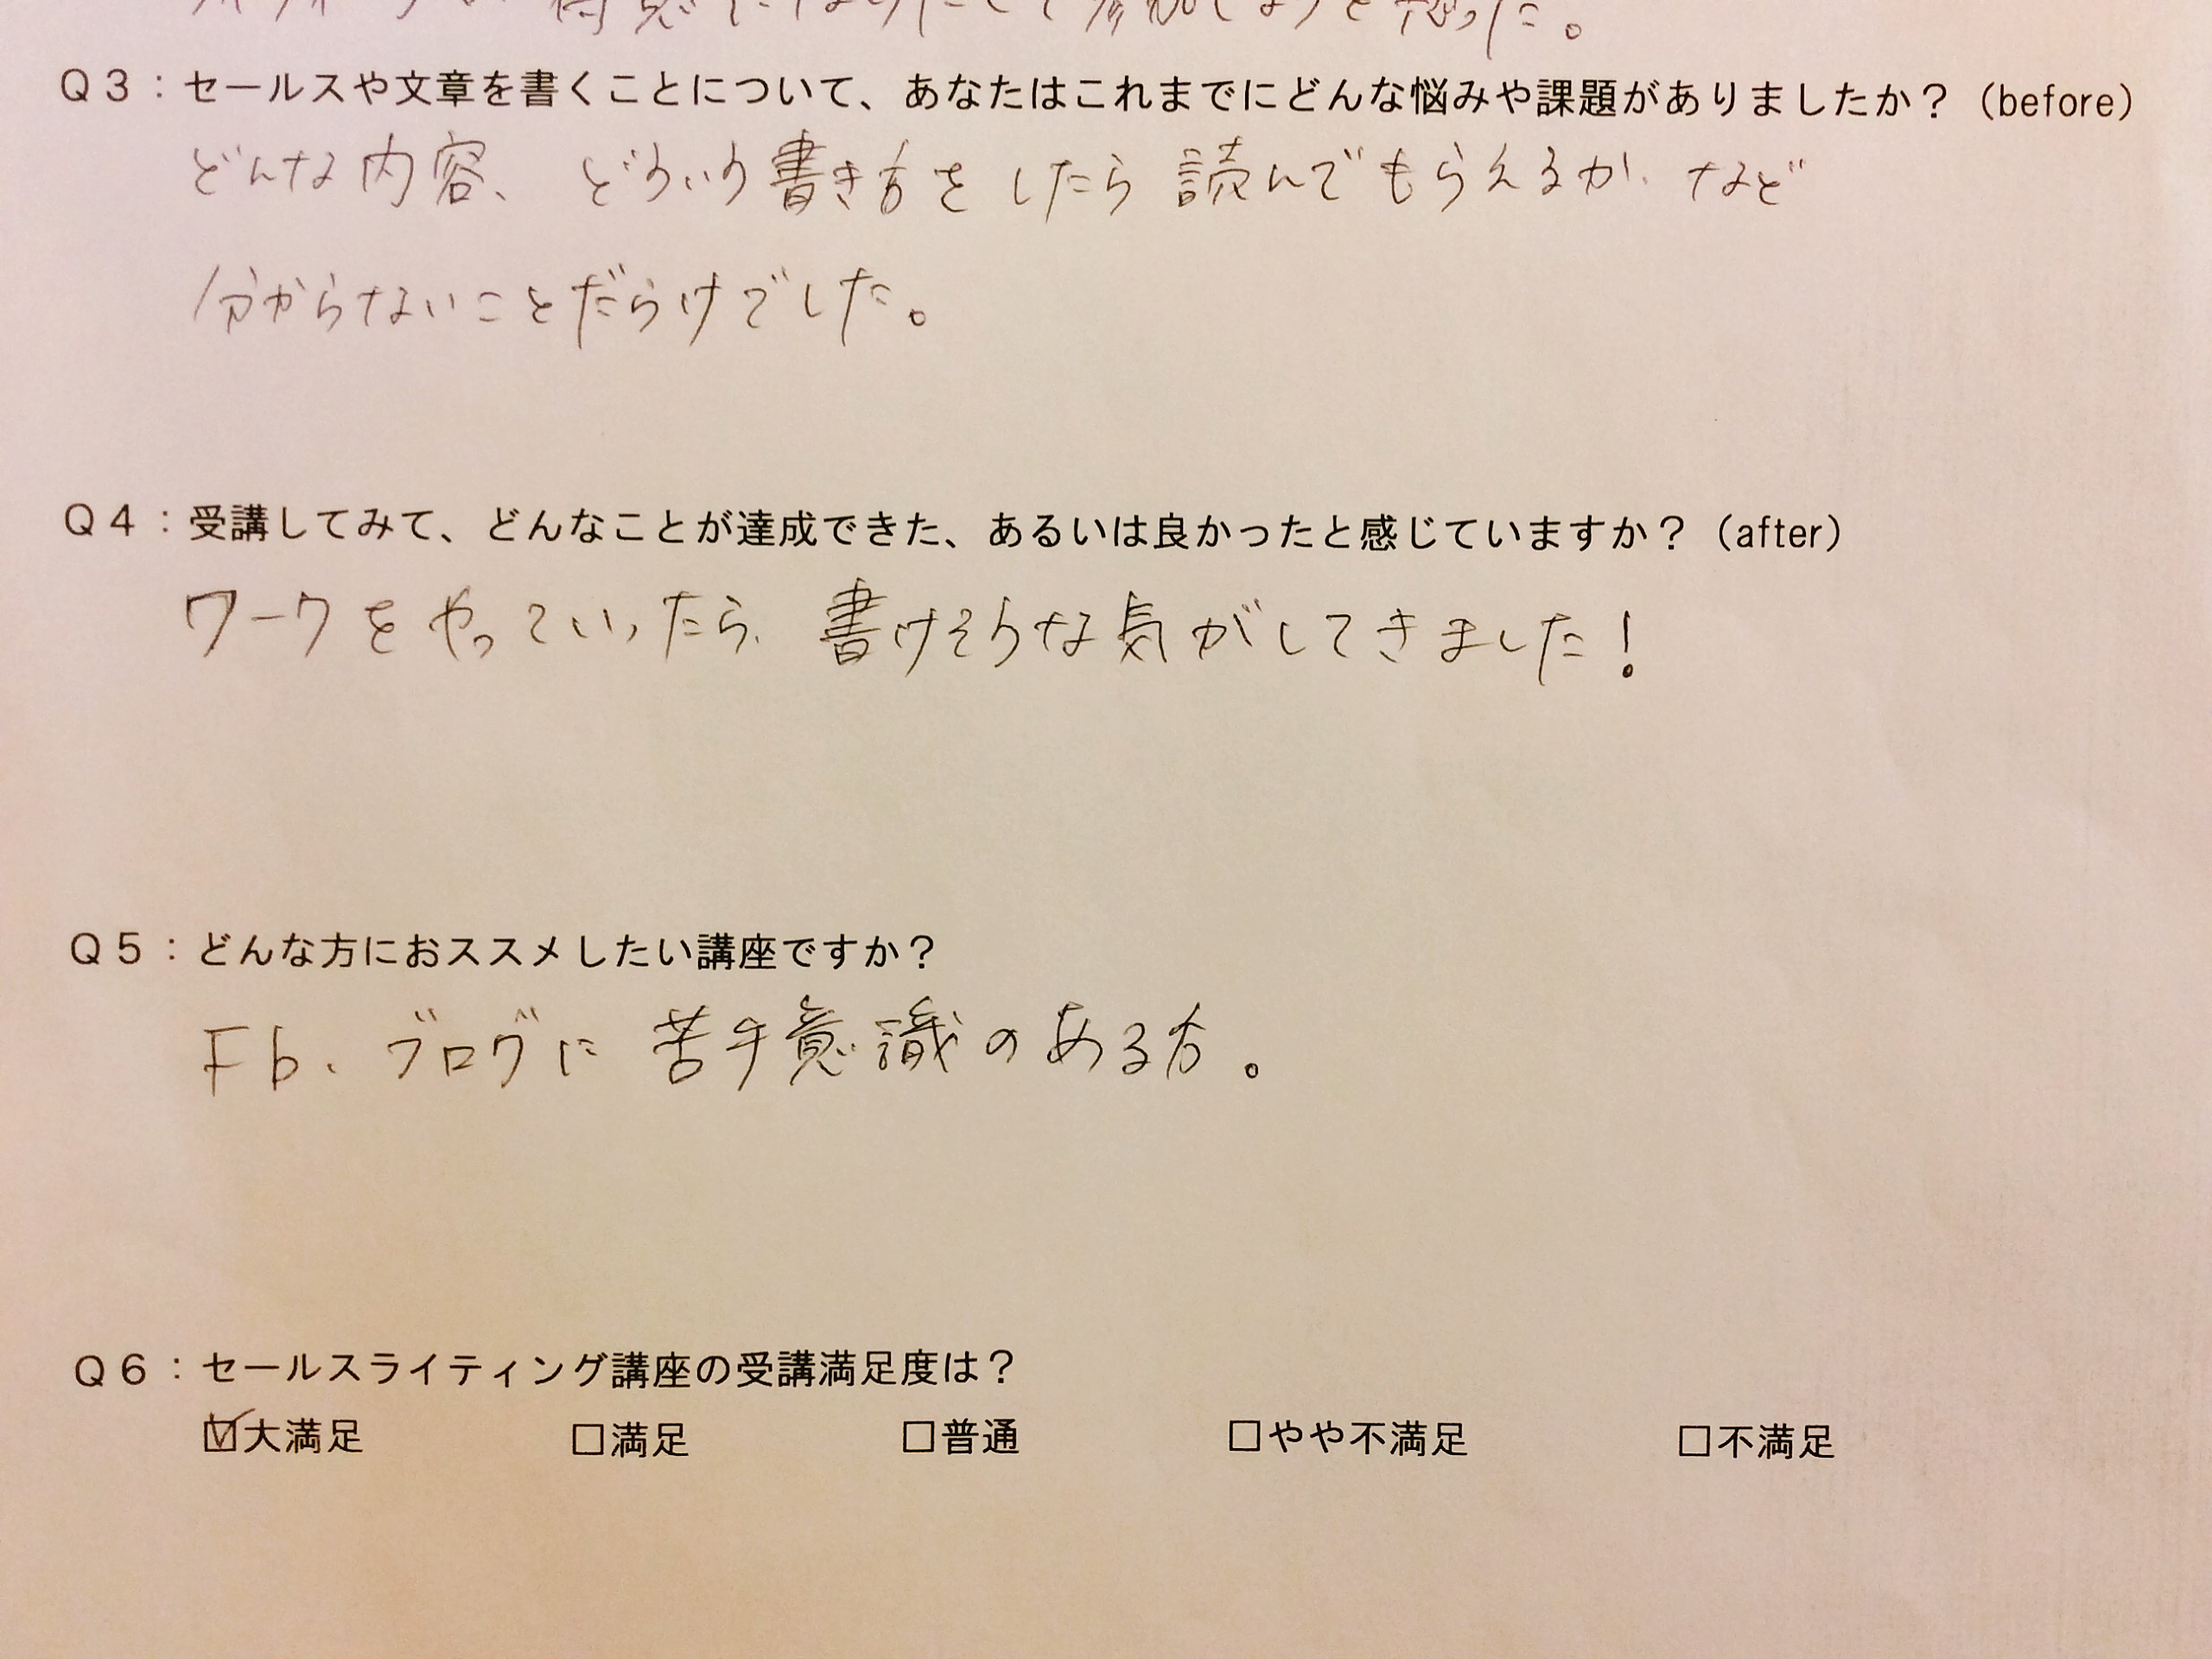 と思った。
Ｑ３：セールスや文章を書くことについて、あなたはこれまでにどんな悩みや課題がありましたか？（before）
どんな内容、どういう書き方をしたら読んでもらえるか、など
分からないことだらけでした。
Ｑ４：受講してみて、どんなことが達成できた、あるいは良かったと感じていますか？（after）
ワークをやっていったら、書けそうな気がしてきました！
Ｑ５：どんな方におススメしたい講座ですか？
Fb、ブログに苦手意識のある方。
Ｑ６：セールスライティング講座の受講満足度は？
☑大満足 □満足 □普通 □やや不満足 □不満足